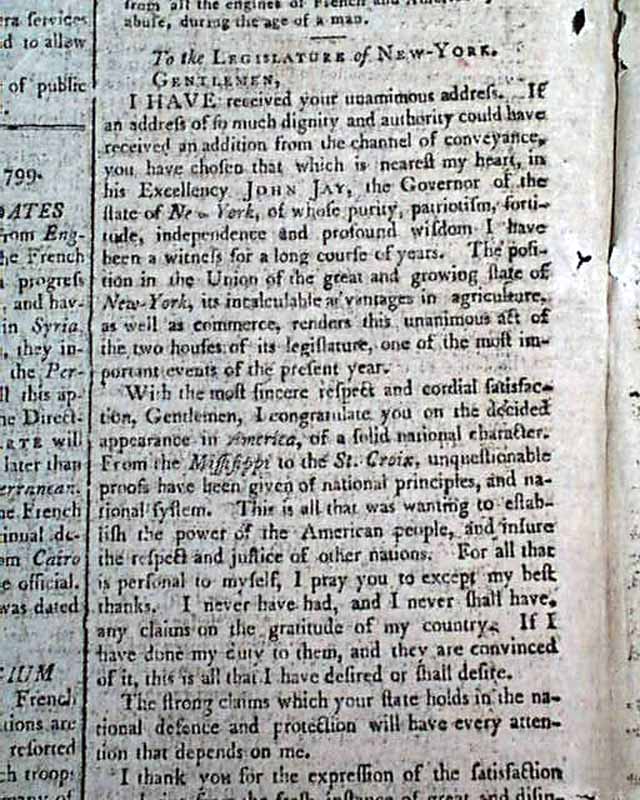 era services
d to allow
of public
799.
DATES
from Eng-
he French
progress
and hav-
in Syria,
they in-
the Per-
ll this ap-
he Direct-
ATE will
later than
erranean.
he French
inual de-
om Cairo
e official.
was dated
IUM
French
tions are
resorted
ch troops
many of
from all the engines of French and
abuse, during the age of a man.
To the LEGISLATURE of NEW-YORK.
GENTLEMEN,
I HAVE received your unamimous addreſs. If
an addreſs of ſo much dignity and authority could have
received an addition from the channel of conveyance,
you have choſen that which is neareſt my heart, in
his Excellency JOHN JAY, the Governor of the
ſtate of New-York, of whoſe purity, patriotiſm, forti-
tude, independence and profound wiſdom I have
been a witneſs for a long courſe of years. The poſi-
tion in the Union of the great and growing ſtate of
New-York, its incalculable advantages in agriculture,
as well as commerce, renders this unanimous act of
the two houſes of its legiſlature, one of the moſt im-
portant events of the preſent year.
With the moſt ſincere reſpect and cordial ſatisfac-
tion, Gentlemen, I congratulate you on the decided
appearance in America, of a ſolid national character.
From the Miſſiſippi to the St. Croix, unqueſtionable
proofs have been given of national principles, and na-
tional ſyſtem. This is all that was wanting to eſtab-
liſh the power of the American people, and inſure
the reſpect and juſtice of other nations. For all that
is perſonal to myſelf, I pray you to except my beſt
thanks. I never have had, and I never ſhall have,
any claims on the gratitude of my country. If I
have done my duty to them, and they are convinced
of it, this is all that I have deſired or ſhall deſire.
The ſtrong claims which your ſtate holds in the na-
tional defence and protection will have every atten-
tion that depends on me.
I thank you for the expreſſion of the ſatisfaction
of great and diſin-